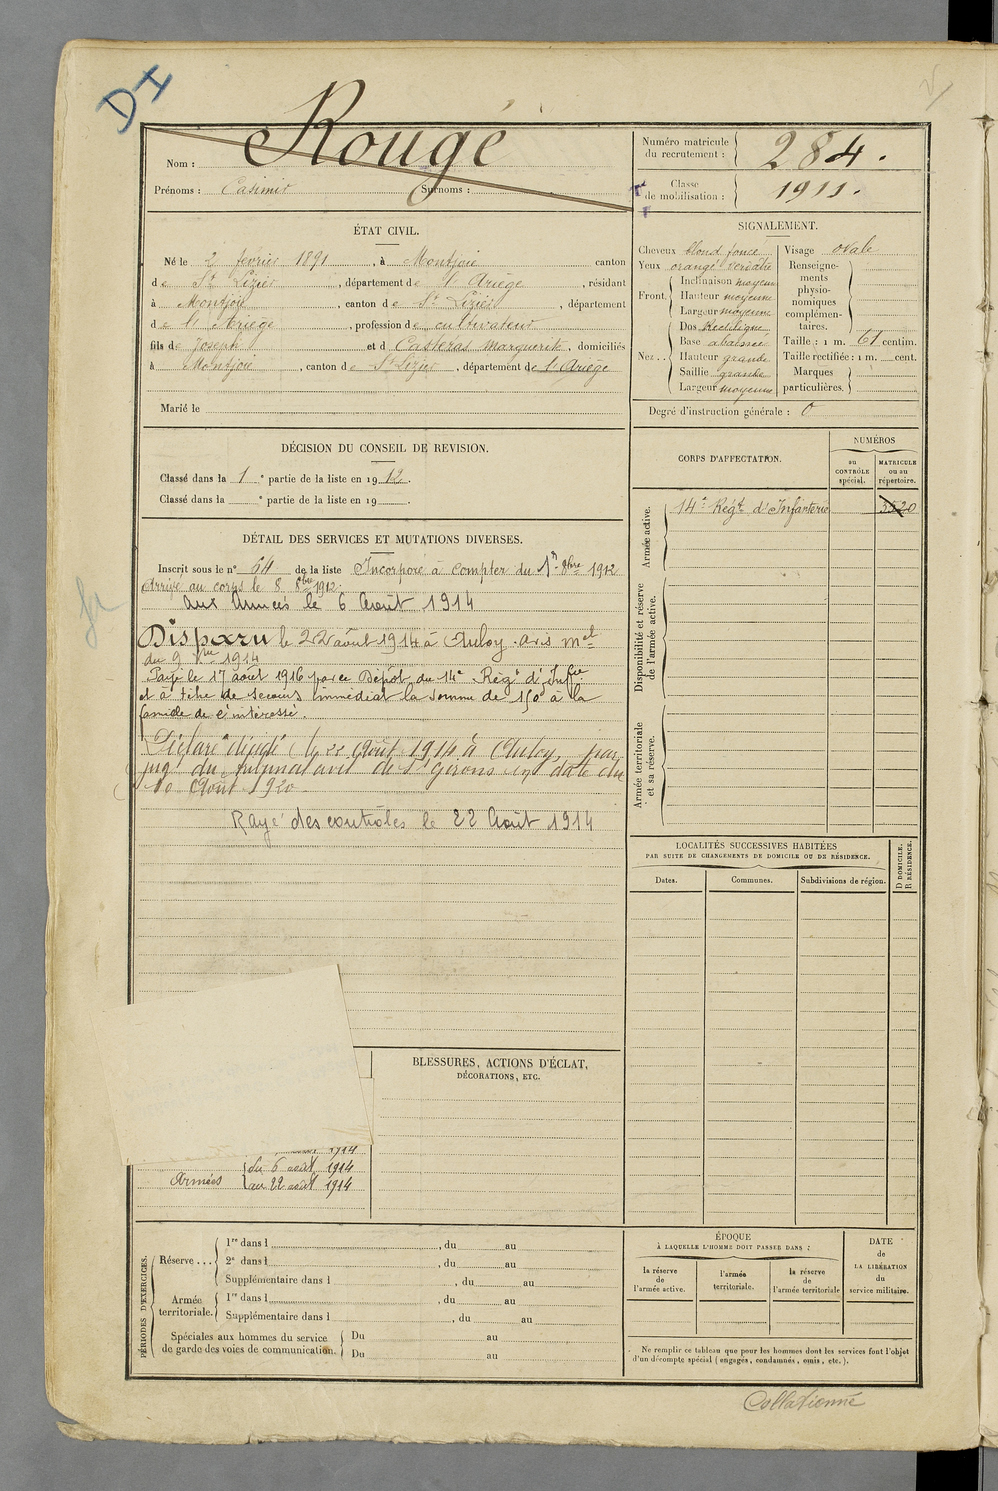 DI
Nom : Rougé
Prénoms : Casimir Surnoms :
Numéro matricule du recrutement : 284.
Classe de mobilisation : 1911.
ÉTAT CIVIL.
Né le 2 février 1891, à Montjoie canton
de St Lizier, département de l'Ariège, résidant
à Montjoie, canton de St Lizier, département
de l'Ariège, profession de cultivateur
fils de Joseph et de Casteras Marguerite, domiciliés
à Montjoie, canton de St Lizier, département de l'Ariège
Marié le
SIGNALEMENT.
Cheveux blond foncé
Yeux orangé verdâtre
Front. Inclinaison moyenne
Hauteur moyenne
Largeur moyenne
Nez. Dos Rectiligne
Base abaissée
Hauteur grande
Saillie grande
Largeur moyenne
Visage ovale
Renseignements physionomiques complémentaires.
Taille : 1 m. 61 centim.
Taille rectifiée : 1 m. cent.
Marques particulières.
Degré d'instruction générale : 0
DÉCISION DU CONSEIL DE REVISION.
Classé dans la 1e partie de la liste en 1912.
Classé dans la e partie de la liste en 19
CORPS D'AFFECTATION.
NUMÉROS
au CONTRÔLE spécial.
MATRICULE ou au répertoire.
Armée active.
14e Regt d'Infanterie
3520
Disponibilité et réserve de l'armée active.
Armée territoriale et sa réserve.
DÉTAIL DES SERVICES ET MUTATIONS DIVERSES.
Inscrit sous le n° 64 de la liste Incorporé à compter du 1er 8bre 1912
Arrivé au corps le 8 8bre 1912.
aux Armées le 6 Août 1914
Disparu le 22 août 1914 à Anloy. avis mel
du 9 Xbre 1914
Payé le 17 août 1916 par le Dépôt du 14e Régt d'Infie
et à titre de secours immédiat la somme de 150f à la
famille de l'intéressé.
Déclaré décédé le 22 Août 1914 à Anloy, par
jugt du tribunal civil de St Girons en date du
10 Août 1920
Rayé des contrôles le 22 Août 1914
LOCALITÉS SUCCESSIVES HABITÉES
PAR SUITE DE CHANGEMENTS DE DOMICILE OU DE RÉSIDENCE.
D DOMICILE.
R RÉSIDENCE.
Dates.
Communes.
Subdivisions de région.
BLESSURES, ACTIONS D'ÉCLAT,
DÉCORATIONS, ETC.
1914
Armées du 6 août 1914
au 22 août 1914
PÉRIODES D'EXERCICES.
Réserve... 1re dans l , du au
2e dans l , du au
Supplémentaire dans l , du au
Armée territoriale. 1re dans l , du au
Supplémentaire dans l , du au
Spéciales aux hommes du service de garde des voies de communication. Du au
Du au
ÉPOQUE
À LAQUELLE L'HOMME DOIT PASSER DANS :
la réserve de l'armée active.
l'armée territoriale.
la réserve de l'armée territoriale
DATE de LA LIBÉRATION du service militaire.
Ne remplir ce tableau que pour les hommes dont les services font l'objet
d'un décompte spécial (engagés, condamnés, omis, etc.).
Collationné